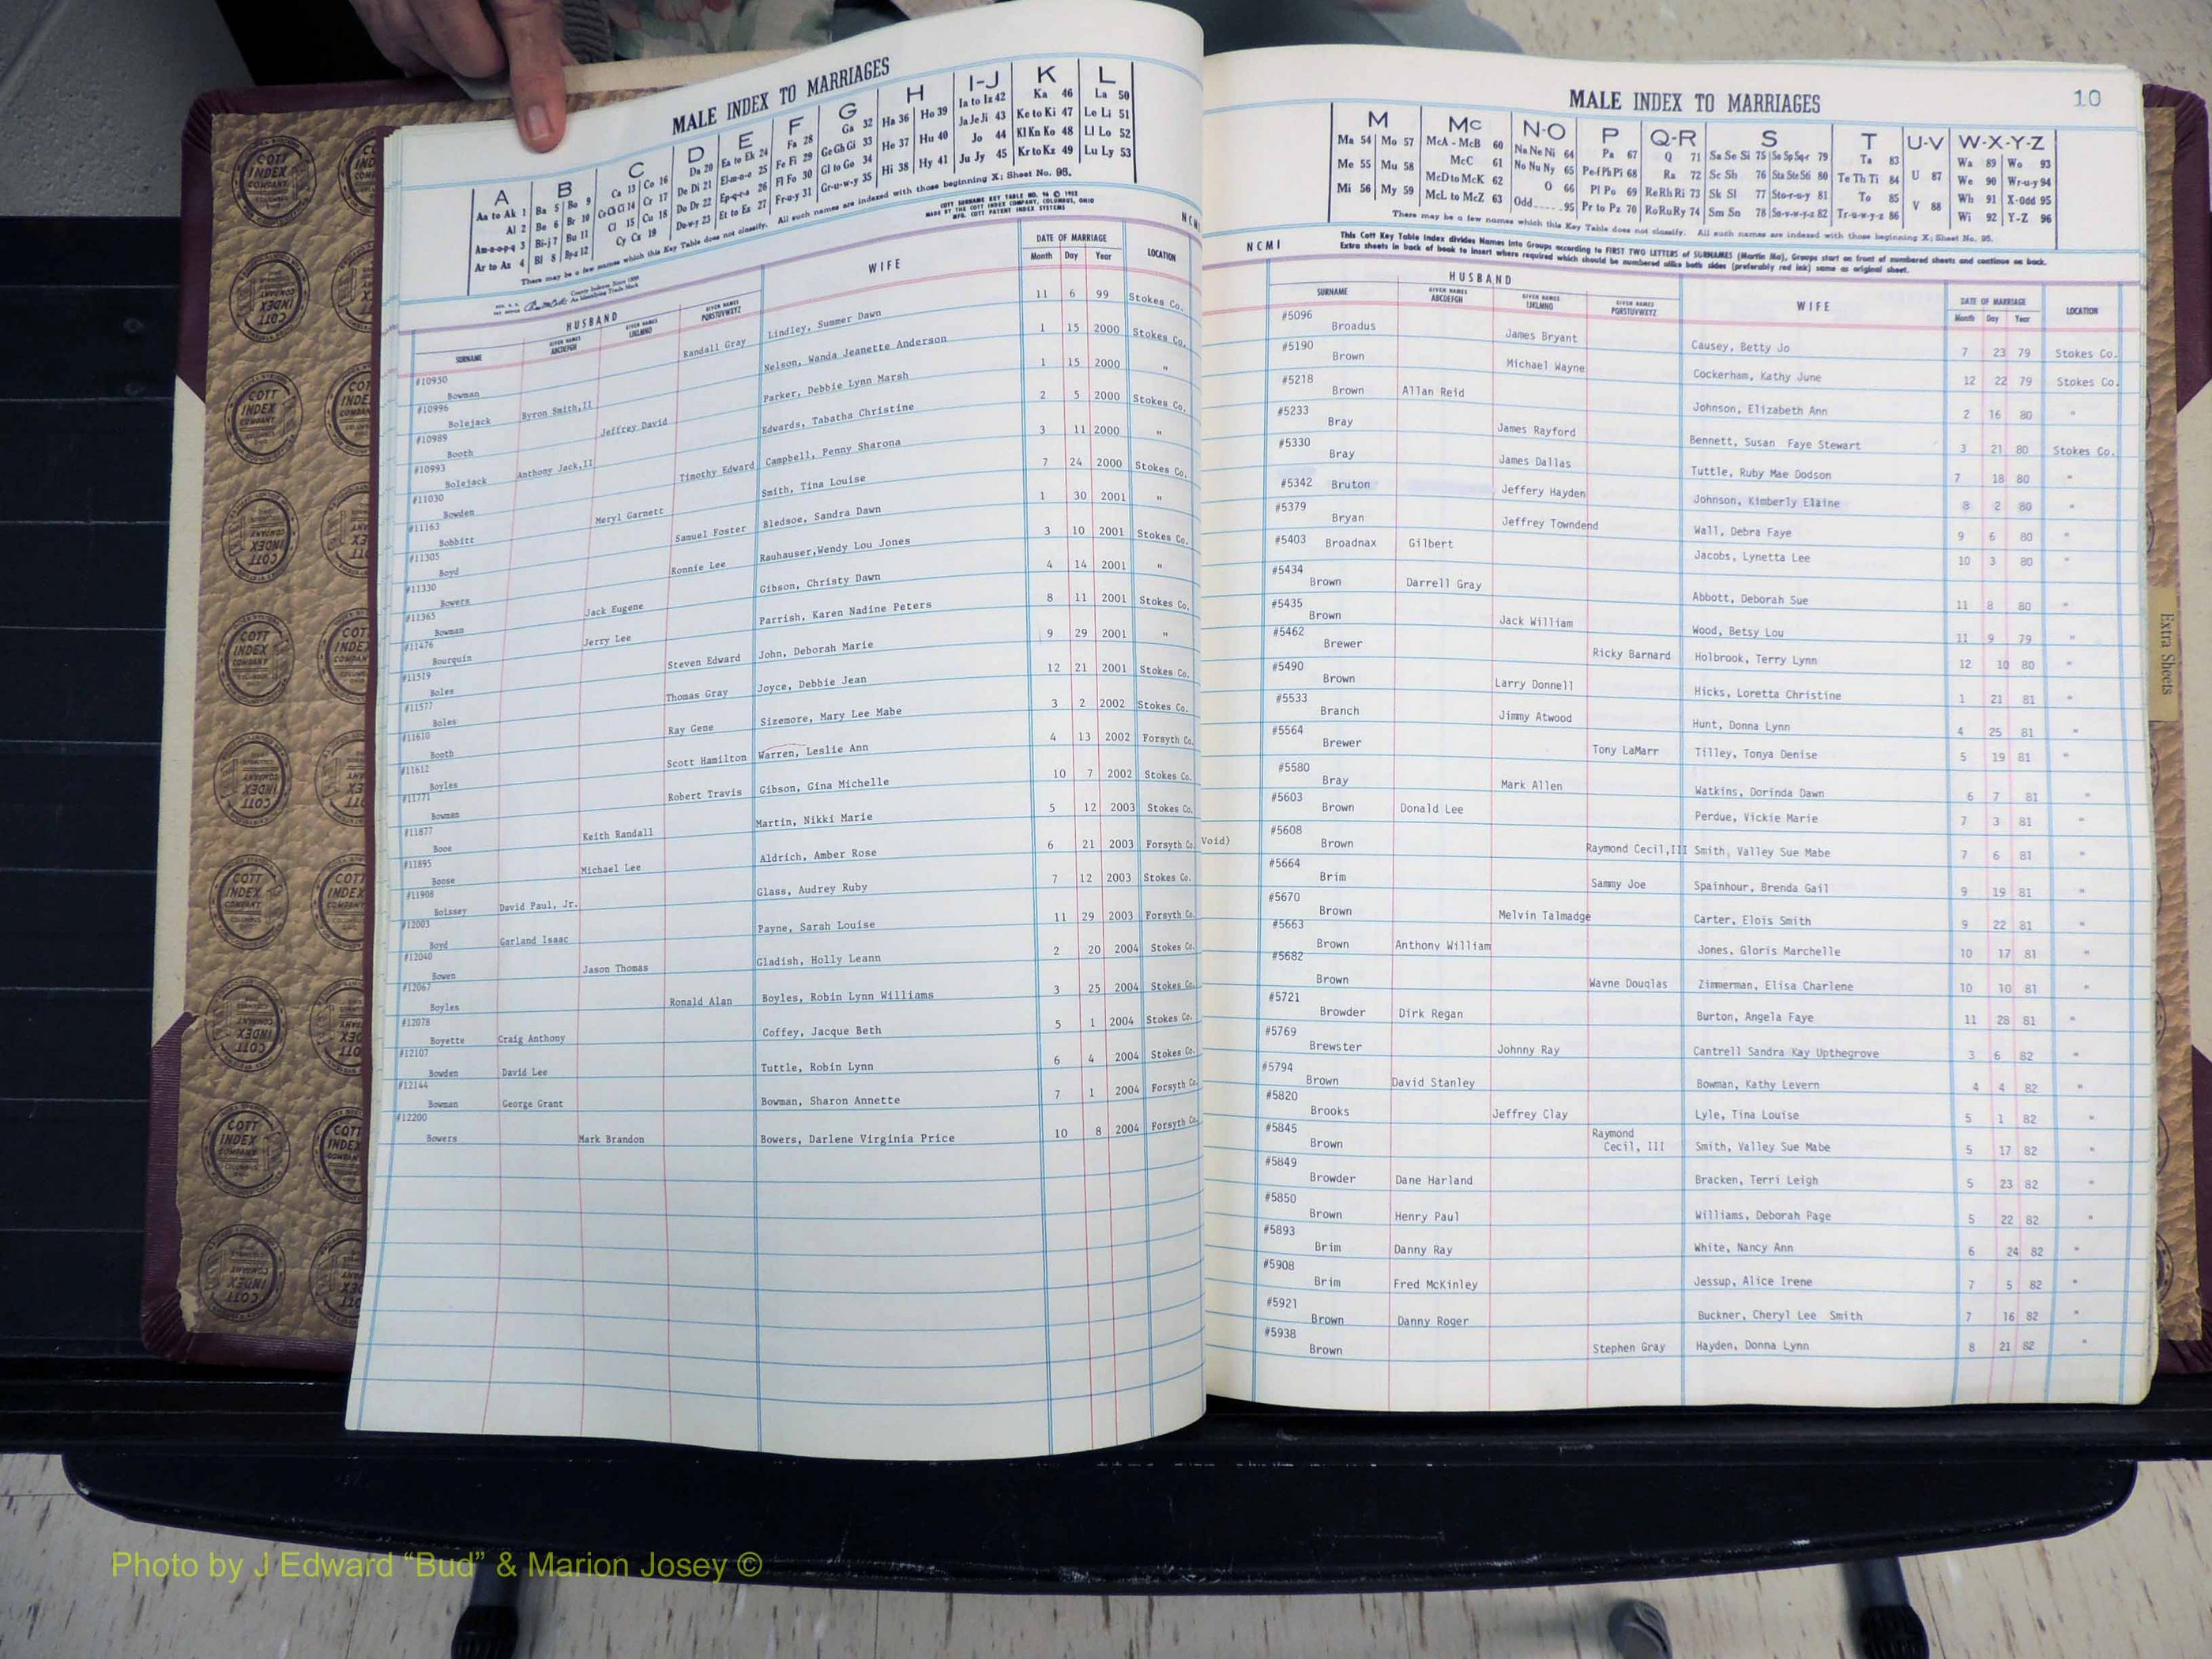 MALE INDEX TO MARRIAGES
A B C D E F G H I-J K L
Aa to Ak 1 Ba 5 Bo 9 Ca 13 Co 16 Da 20 Ea to Ek 24 Fa 28 Ga 32 Ha 36 Ho 39 Ia to Iz 42 Ka 46 La 50
Al 2 Be 6 Br 10 Ce Ch Ci 14 Cr 17 De Di 21 El-m-n-o 25 Fe Fi 29 Ge Gh Gi 33 He 37 Hu 40 Ja Je Ji 43 Ke to Ki 47 Le Li 51
Am-n-o-p-q 3 Bi-j 7 Bu 11 Cl 15 Cu 18 Do Dr 22 Ep-q-r-s 26 Fl Fo 30 Gl to Go 34 Hi 38 Hy 41 Jo 44 Kl Kn Ko 48 Ll Lo 52
Ar to Az 4 Bl 8 By-z 12 Cy Cz 19 Du-w-y 23 Et to Ez 27 Fr-u-y 31 Gr-u-w-y 35 Ju Jy 45 Kr to Kz 49 Lu Ly 53
There may be a few names which this Key Table does not classify. All such names are indexed with those beginning X; Sheet No. 95.
COTT SURNAME KEY TABLE NO. 96 © 1952
MADE BY THE COTT INDEX COMPANY, COLUMBUS, OHIO
MFG. COTT PATENT INDEX SYSTEMS
HUSBAND WIFE DATE OF MARRIAGE LOCATION
SURNAME GIVEN NAMES ABCDEFGH GIVEN NAMES IJKLMNO GIVEN NAMES PQRSTUVWXYZ Month Day Year
#10950
Bowman Randall Gray Lindley, Summer Dawn 11 6 99 Stokes Co.
#10996
Bolejack Byron Smith,II Nelson, Wanda Jeanette Anderson 1 15 2000 Stokes Co.
#10989
Booth Jeffrey David Parker, Debbie Lynn Marsh 1 15 2000 "
#10993
Bolejack Anthony Jack,II Edwards, Tabatha Christine 2 5 2000 Stokes Co.
#11030
Bowden Timothy Edward Campbell, Penny Sharona 3 11 2000 "
#11163
Bobbitt Meryl Garnett Smith, Tina Louise 7 24 2000 Stokes Co.
#11305
Boyd Samuel Foster Bledsoe, Sandra Dawn 1 30 2001 "
#11330
Bowers Ronnie Lee Rauhauser,Wendy Lou Jones 3 10 2001 Stokes Co.
#11365
Bowman Jack Eugene Gibson, Christy Dawn 4 14 2001 "
#11476
Bourquin Jerry Lee Parrish, Karen Nadine Peters 8 11 2001 Stokes Co.
#11519
Boles Steven Edward John, Deborah Marie 9 29 2001 "
#11577
Boles Thomas Gray Joyce, Debbie Jean 12 21 2001 Stokes Co.
#11610
Booth Ray Gene Sizemore, Mary Lee Mabe 3 2 2002 Stokes Co.
#11612
Boyles Scott Hamilton Warren, Leslie Ann 4 13 2002 Forsyth Co.
#11771
Bowman Robert Travis Gibson, Gina Michelle 10 7 2002 Stokes Co.
#11877
Booe Keith Randall Martin, Nikki Marie 5 12 2003 Stokes Co.
#11895
Boose Michael Lee Aldrich, Amber Rose 6 21 2003 Forsyth Co.
#11908
Boissey David Paul, Jr. Glass, Audrey Ruby 7 12 2003 Stokes Co.
#12003
Boyd Garland Isaac Payne, Sarah Louise 11 29 2003 Forsyth Co.
#12040
Bowen Jason Thomas Gladish, Holly Leann 2 20 2004 Stokes Co.
#12067
Boyles Ronald Alan Boyles, Robin Lynn Williams 3 25 2004 Stokes Co.
#12078
Boyette Craig Anthony Coffey, Jacque Beth 5 1 2004 Stokes Co.
#12107
Bowden David Lee Tuttle, Robin Lynn 6 4 2004 Stokes Co.
#12144
Bowman George Grant Bowman, Sharon Annette 7 1 2004 Forsyth Co.
#12200
Bowers Mark Brandon Bowers, Darlene Virginia Price 10 8 2004 Forsyth Co.
MALE INDEX TO MARRIAGES 10
M Mc N-O P Q-R S T U-V W-X-Y-Z
Ma 54 Mo 57 McA - McB 60 Na Ne Ni 64 Pa 67 Q 71 Sa Se Si 75 So Sp Sq-r 79 Ta 83 U 87 Wa 89 Wo 93
Me 55 Mu 58 McC 61 No Nu Ny 65 Pe Pf Ph Pi 68 Ra 72 Sc Sh 76 Sta Ste Sti 80 Te Th Ti 84 We 90 Wr-u-y 94
Mi 56 My 59 McD to McK 62 O 66 Pl Po 69 Re Rh Ri 73 Sk Sl 77 Sto-r-u-y 81 To 85 V 88 Wh 91 X-Odd 95
McL to McZ 63 Odd 95 Pr to Pz 70 Ro Ru Ry 74 Sm Sn 78 Su-v-w-y-z 82 Tr-u-w-y-z 86 Wi 92 Y-Z 96
There may be a few names which this Key Table does not classify. All such names are indexed with those beginning X; Sheet No. 95.
NCMI
This Cott Key Table Index divides Names into Groups according to FIRST TWO LETTERS of SURNAMES (Martin Ma), Groups start on front of numbered sheets and continue on back.
Extra sheets in back of book to insert where required which should be numbered alike both sides (preferably red ink) same as original sheet.
HUSBAND WIFE DATE OF MARRIAGE LOCATION
SURNAME GIVEN NAMES ABCDEFGH GIVEN NAMES IJKLMNO GIVEN NAMES PQRSTUVWXYZ Month Day Year
#5096
Broadus James Bryant Causey, Betty Jo 7 23 79 Stokes Co.
#5190
Brown Michael Wayne Cockerham, Kathy June 12 22 79 Stokes Co.
#5218
Brown Allan Reid Johnson, Elizabeth Ann 2 16 80 "
#5233
Bray James Rayford Bennett, Susan Faye Stewart 3 21 80 Stokes Co.
#5330
Bray James Dallas Tuttle, Ruby Mae Dodson 7 18 80 "
#5342 Bruton Jeffery Hayden Johnson, Kimberly Elaine 8 2 80 "
#5379
Bryan Jeffrey Towndend Wall, Debra Faye 9 6 80 "
#5403 Broadnax Gilbert Jacobs, Lynetta Lee 10 3 80 "
#5434
Brown Darrell Gray Abbott, Deborah Sue 11 8 80 "
#5435
Brown Jack William Wood, Betsy Lou 11 9 79 "
#5462
Brewer Ricky Barnard Holbrook, Terry Lynn 12 10 80 "
#5490
Brown Larry Donnell Hicks, Loretta Christine 1 21 81
#5533
Branch Jimmy Atwood Hunt, Donna Lynn 4 25 81 "
#5564
Brewer Tony LaMarr Tilley, Tonya Denise 5 19 81 "
#5580
Bray Mark Allen Watkins, Dorinda Dawn 6 7 81 "
#5603
Brown Donald Lee Perdue, Vickie Marie 7 3 81 "
#5608
Void) Brown Raymond Cecil,III Smith, Valley Sue Mabe 7 6 81 "
#5664
Brim Sammy Joe Spainhour, Brenda Gail 9 19 81 "
#5670
Brown Melvin Talmadge Carter, Elois Smith 9 22 81 "
#5663
Brown Anthony William Jones, Gloris Marchelle 10 17 81 "
#5682
Brown Wayne Douglas Zimmerman, Elisa Charlene 10 10 81 "
#5721
Browder Dirk Regan Burton, Angela Faye 11 28 81 "
#5769
Brewster Johnny Ray Cantrell Sandra Kay Upthegrove 3 6 82 "
#5794
Brown David Stanley Bowman, Kathy Levern 4 4 82 "
#5820
Brooks Jeffrey Clay Lyle, Tina Louise 5 1 82 "
#5845 Raymond
Brown Cecil, III Smith, Valley Sue Mabe 5 17 82 "
#5849
Browder Dane Harland Bracken, Terri Leigh 5 23 82 "
#5850
Brown Henry Paul Williams, Deborah Page 5 22 82 "
#5893
Brim Danny Ray White, Nancy Ann 6 24 82 "
#5908
Brim Fred McKinley Jessup, Alice Irene 7 5 82 "
#5921
Brown Danny Roger Buckner, Cheryl Lee Smith 7 16 82 "
#5938
Brown Stephen Gray Hayden, Donna Lynn 8 21 82 "
Extra Sheets
Photo by J Edward “Bud” & Marion Josey ©